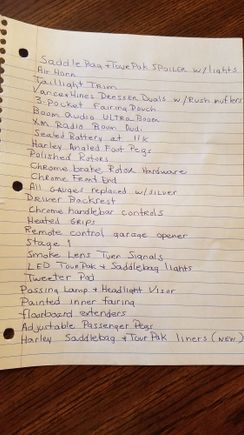 Saddle Bag + Tour Pak Spoiler w/ lights
Air Horn
Taillight Trim
Vance + Hines Dresser Duals w/ Rush mufflers
3-Pocket Fairing Pouch
Boom audio ULTRA Boom
XM Radio Boom Audi
Sealed Battery at 11k
Harley Angled Foot Pegs
Polished Rotors
Chrome brake Rotor Hardware
Chrome Front End
All GAUGES replaced w/ SILVER
Driver Backrest
Chrome handlebar controls
Heated GRIPS
Remote control garage opener
Stage 1
Smoke Lens Turn Signals
LED Tour Pak + Saddlebag lights
Tweeter Pod
Passing Lamp + Headlight Visor
Painted inner fairing
floorboard extenders
Adjustable Passenger Pegs
Harley Saddlebag + Tour Pak liners (NEW)